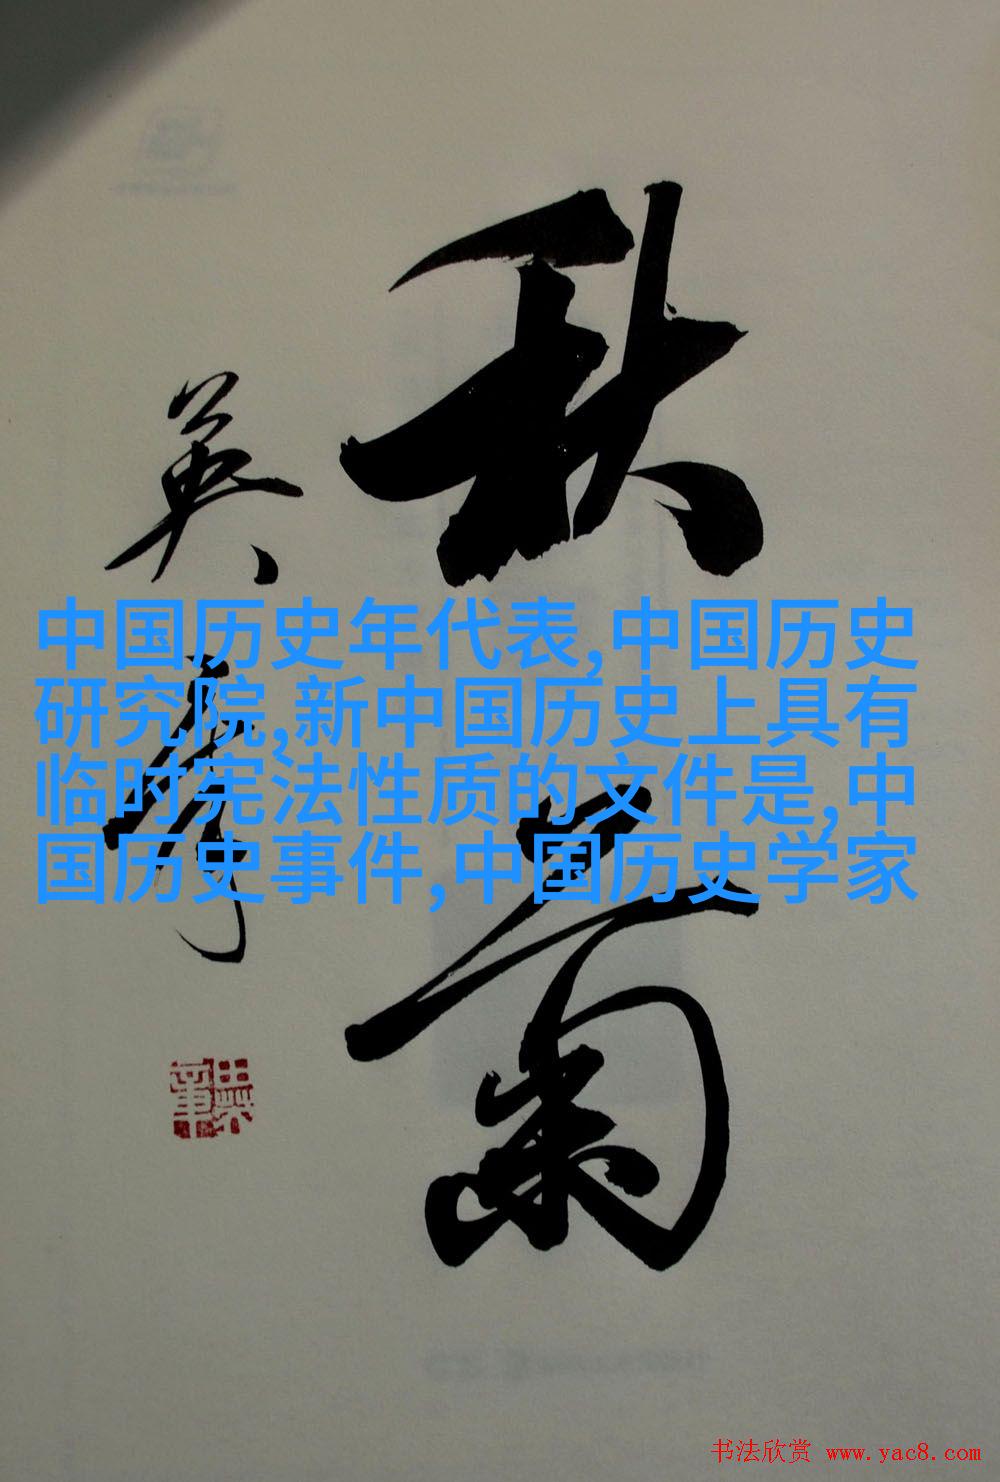 秋菊
英秀
中国历史年代表,中国历史
研究院,新中国历史上具有
临时宪法性质的文件是,中
国历史事件,中国历史学家
书法欣赏 www.yac8.com